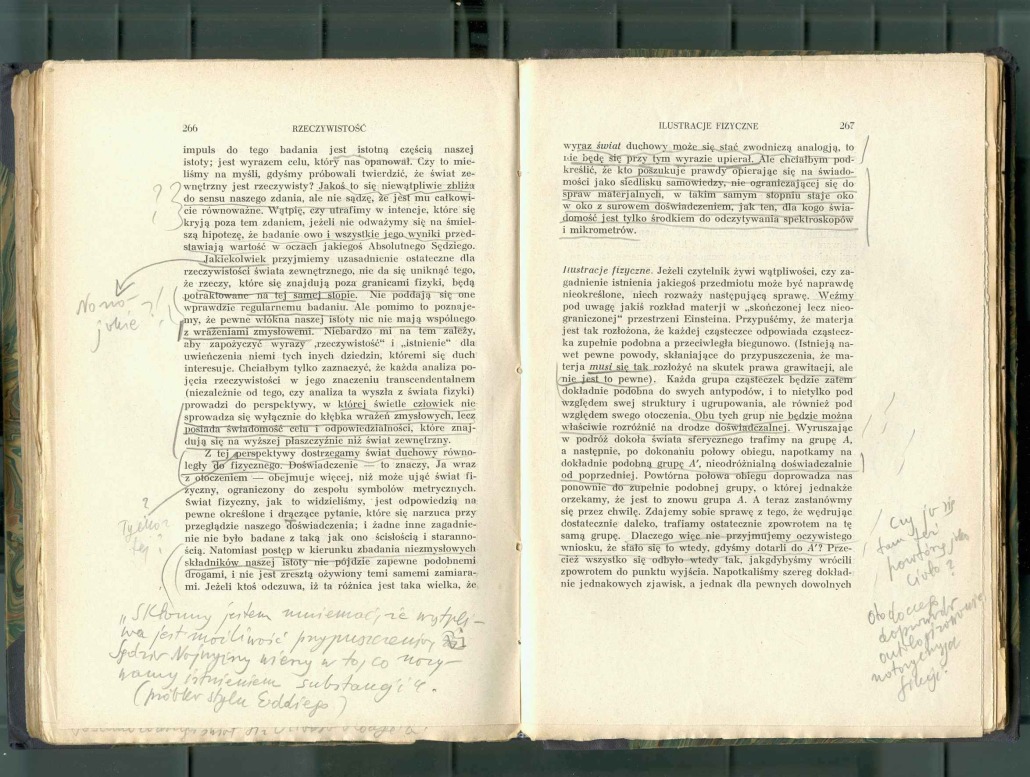 266
RZECZYWISTOŚĆ
impuls do tego badania jest istotną częścią naszej
istoty; jest wyrazem celu, który nas opanował. Czy to mie-
liśmy na myśli, gdyśmy próbowali twierdzić, że świat ze-
wnętrzny jest rzeczywisty? Jakoś to się niewątpliwie zbliża
do sensu naszego zdania, ale nie sądzę, że jest mu całkowi-
cie równoważne. Wątpię, czy utrafimy w intencje, które się
kryją poza tem zdaniem, jeżeli nie odważymy się na śmiel-
szą hipotezę, że badanie owo i wszystkie jego wyniki przed-
stawiają wartość w oczach jakiegoś Absolutnego Sędziego.
Jakiekolwiek przyjmiemy uzasadnienie ostateczne dla
rzeczywistości świata zewnętrznego, nie da się uniknąć tego,
że rzeczy, które się znajdują poza granicami fizyki, będą
potraktowane na tej samej stopie. Nie poddają się one
wprawdzie regularnemu badaniu. Ale pomimo to poznaje-
my, że pewne włókna naszej istoty nic nie mają wspólnego
z wrażeniami zmysłowemi. Niebardzo mi na tem zależy,
aby zapożyczyć wyrazy „rzeczywistość“ i „istnienie“ dla
uwieńczenia niemi tych innych dziedzin, któremi się duch
interesuje. Chciałbym tylko zaznaczyć, że każda analiza po-
jęcia rzeczywistości w jego znaczeniu transcendentalnem
(niezależnie od tego, czy analiza ta wyszła z świata fizyki)
prowadzi do perspektywy, w której świetle człowiek nie
sprowadza się wyłącznie do kłębka wrażeń zmysłowych, lecz
posiada świadomość celu i odpowiedzialności, które znaj-
dują się na wyższej płaszczyźnie niż świat zewnętrzny.
Z tej perspektywy dostrzegamy świat duchowy równo-
legły do fizycznego. Doświadczenie — to znaczy, Ja wraz
z otoczeniem — obejmuje więcej, niż może ująć świat fi-
zyczny, ograniczony do zespołu symbolów metrycznych.
Świat fizyczny, jak to widzieliśmy, jest odpowiedzią na
pewne określone i drączące pytanie, które się narzuca przy
przeglądzie naszego doświadczenia; i żadne inne zagadnie-
nie nie było badane z taką jak ono ścisłością i staranno-
ścią. Natomiast postęp w kierunku zbadania niezmysłowych
składników naszej istoty nie pójdzie zapewne podobnemi
drogami, i nie jest zresztą ożywiony temi samemi zamiara-
mi. Jeżeli ktoś odczuwa, iż ta różnica jest taka wielka, że
??
?!
Tylko z
tej?
„Skłonny jestem mniemać, że wątpli-
wa jest możliwość przypuszczenia,
Sędzia Najwyższy wierzy w to, co nazy-
wamy istnieniem substancji“.
(próbka stylu Eddiego)
ILUSTRACJE FIZYCZNE
267
wyraz świat duchowy może się stać zwodniczą analogją, to
nie będę się przy tym wyrazie upierał. Ale chciałbym pod-
kreślić, że kto poszukuje prawdy opierając się na świado-
mości jako siedlisku samowiedzy, nie ograniczającej się do
spraw materjalnych, w takim samym stopniu staje oko
w oko z surowem doświadczeniem, jak ten, dla kogo świa-
domość jest tylko środkiem do odczytywania spektroskopów
i mikrometrów.
Ilustracje fizyczne. Jeżeli czytelnik żywi wątpliwości, czy za-
gadnienie istnienia jakiegoś przedmiotu może być naprawdę
nieokreślone, niech rozważy następującą sprawę. Weźmy
pod uwagę jakiś rozkład materji w „skończonej lecz nieo-
graniczonej“ przestrzeni Einsteina. Przypuśćmy, że materja
jest tak rozłożona, że każdej cząsteczce odpowiada cząstecz-
ka zupełnie podobna a przeciwległa biegunowo. (Istnieją na-
wet pewne powody, skłaniające do przypuszczenia, że ma-
terja musi się tak rozłożyć na skutek prawa grawitacji, ale
nie jest to pewne). Każda grupa cząsteczek będzie zatem
dokładnie podobna do swych antypodów, i to nietylko pod
względem swej struktury i ugrupowania, ale również pod
względem swego otoczenia. Obu tych grup nie będzie można
właściwie rozróżnić na drodze doświadczalnej. Wyruszając
w podróż dokoła świata sferycznego trafimy na grupę A,
a następnie, po dokonaniu połowy obiegu, napotkamy na
dokładnie podobną grupę A′, nieodróżnialną doświadczalnie
od poprzedniej. Powtórna połowa obiegu doprowadza nas
ponownie do zupełnie podobnej grupy, o której jednakże
orzekamy, że jest to znowu grupa A. A teraz zastanówmy
się przez chwilę. Zdajemy sobie sprawę z tego, że wędrując
dostatecznie daleko, trafiamy ostatecznie zpowrotem na tę
samą grupę. Dlaczego więc nie przyjmujemy oczywistego
wniosku, że stało się to wtedy, gdyśmy dotarli do A′? Prze-
cież wszystko się odbyło wtedy tak, jakgdybyśmy wrócili
zpowrotem do punktu wyjścia. Napotkaliśmy szereg dokład-
nie jednakowych zjawisk, a jednak dla pewnych dowolnych
Czy ja się
tam też
powtórzę jako
ciało?
Oto do czego
doprowadza